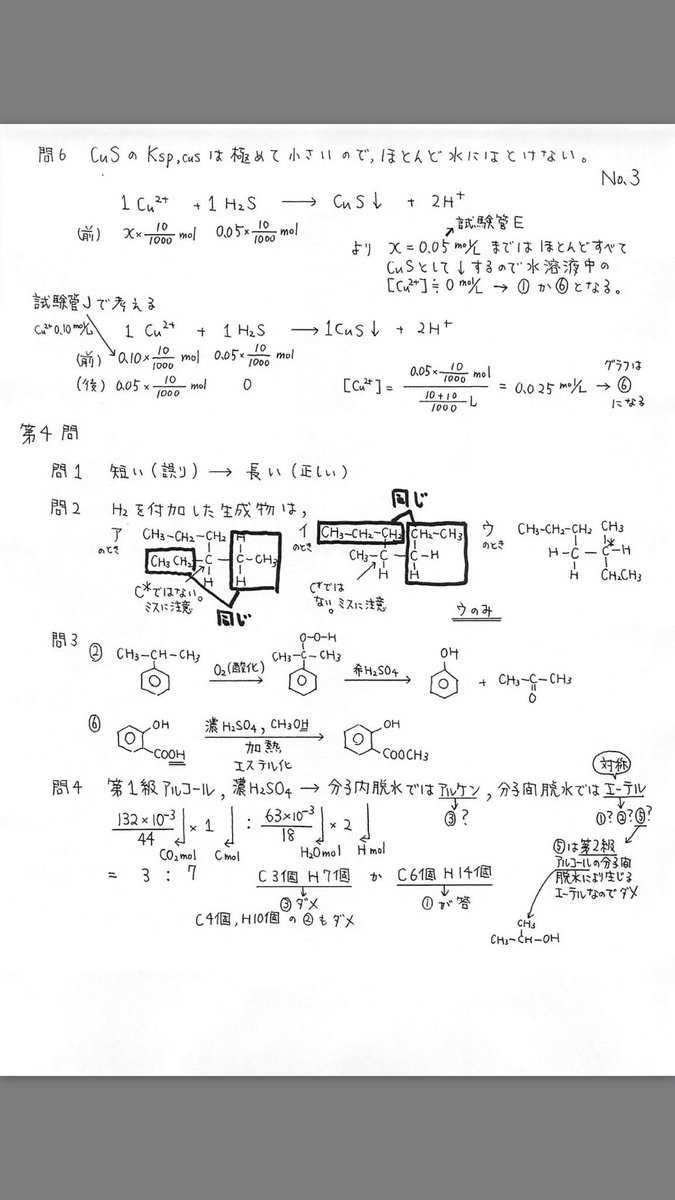 問6 CuSのKsp,cusは極めて小さいので,ほとんど水にはとけない。
No.3
1Cu²⁺ + 1H₂S → CuS↓ + 2H⁺
(前) x×10/1000 mol 0.05×10/1000 mol
試験管E
より x=0.05 mol/L まではほとんどすべて
CuSとして↓するので水溶液中の
[Cu²⁺]≒0 mol/L → ①か⑥となる。
試験管Jで考える
Cu²⁺0.10mol/L 1Cu²⁺ + 1H₂S → 1CuS↓ + 2H⁺
(前) 0.10×10/1000 mol 0.05×10/1000 mol
(後) 0.05×10/1000 mol 0
[Cu²⁺] = (0.05×10/1000 mol)/((10+10)/1000 L) = 0.025 mol/L → グラフは⑥になる
第4問
問1 短い(誤り) → 長い(正しい)
問2 H₂を付加した生成物は,
同じ
アのとき CH₃-CH₂-CH₂ H
CH₃CH₂-C-C-CH₃
H H
C*ではない。ミスに注意
同じ
イのとき CH₃-CH₂-CH₂ CH₂-CH₃
CH₃-C-C-H
H H
C*ではない。ミスに注意
ウのとき CH₃-CH₂-CH₂ CH₃
H-C-C*-H
H CH₂CH₃
ウのみ
問3
② CH₃-CH-CH₃ O₂(酸化) O-O-H CH₃-C-CH₃ 希H₂SO₄ OH + CH₃-C-CH₃ O
⑥ OH COOH 濃H₂SO₄, CH₃OH 加熱 エステル化 OH COOCH₃
問4 第1級アルコール, 濃H₂SO₄ → 分子内脱水ではアルケン, 分子間脱水ではエーテル
対称
③? ①?②?⑤?
132×10⁻³/44 ×1 : 63×10⁻³/18 ×2
CO₂mol Cmol H₂Omol Hmol
= 3 : 7 C3個 H7個 か C6個 H14個
③ダメ ①が答
C4個, H10個の②もダメ
⑤は第2級
アルコールの分子間
脱水により生じる
エーテルなのでダメ
CH₃
CH₃-CH-OH